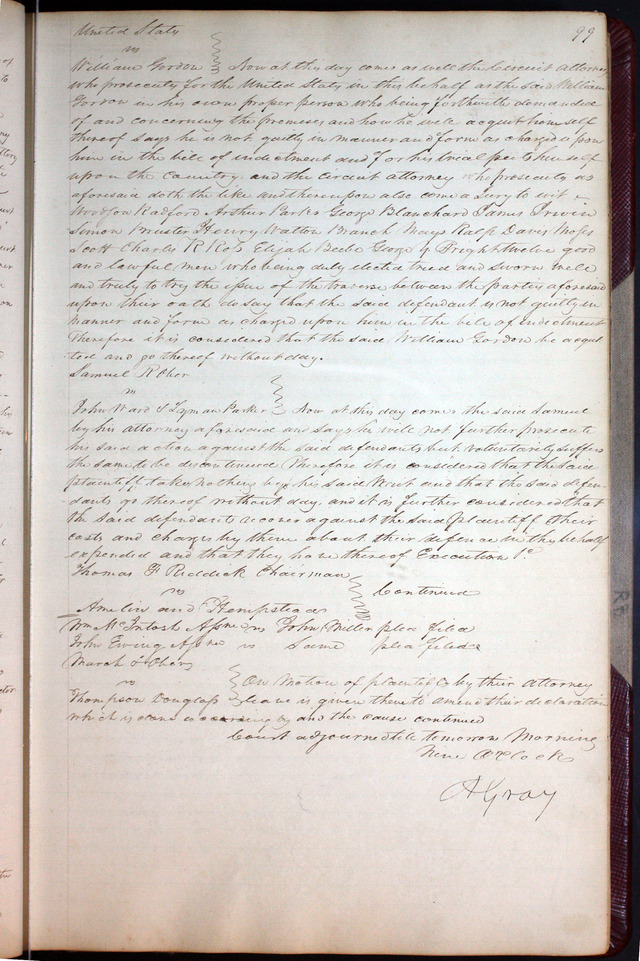 99
United States
vs
William Gordon } Now at this day comes as well the Circuit Attorney
who prosecutes for the United States in this behalf as the said William
Gordon in his own proper person who being forthwith demanded
of and concerning the premises and how he will acquit himself
thereof says he is not guilty in manner and form as charged upon
him in the bill of indictment and for his trial puts himself
upon the country and the circuit attorney who prosecutes as
aforesaid doth the like and thereupon also came a Jury to wit
Woodson Radford Arthur Parks George Blanchard James Irwin
Simon Bruster Henry Watton Branch Mays Ralph Daves Moses
Scott Charles R Ross Elijah Beebe George G twelve good
and lawful men who being duly elected tried and sworn well
and truly to try the issue of the traverse between the parties aforesaid
upon their oath do say that the said defendant is not guilty in
manner and form as charged upon him in the bill of indictment
Therefore it is considered that the said William Gordon be acquit
ted and go thereof without day.
Samuel R Ober
vs
John Ward & Lyman Parker } Now at this day comes the said Samuel
by his attorney aforesaid and says he will not further prosecute
his said action against the said defendants but voluntarily suffers
the same to be discontinued Therefore it is considered that the said
plaintiff take nothing by his said Writ and that the said defen-
dants go thereof without day and it is further considered that
the said defendants recover against the said plaintiff their
costs and charges by them about their defence in this behalf
expended and that they have thereof Execution &c
Thomas F Riddick Chairman
vs } Continued
Amelin and Hempstead
Wm McIntosh Assne vs John Miller plea filed
John Ewing Assne vs Same plea filed
Marsh & Ober
vs } On Motion of plaintiffs by their attorney
Thompson Douglass leave is given them to amend their declaration
which is done accordingly and the cause continued
Court adjourned till tomorrow Morning
Nine O'Clock
A Gray